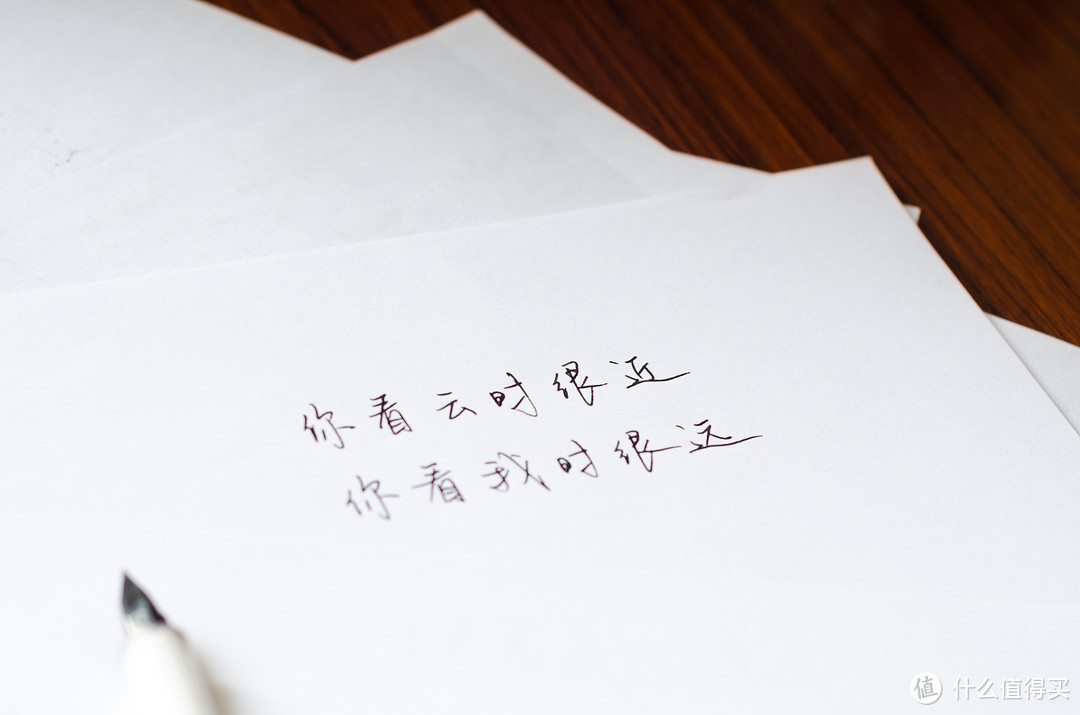 你看云时很近
你看我时很远
值 什么值得买